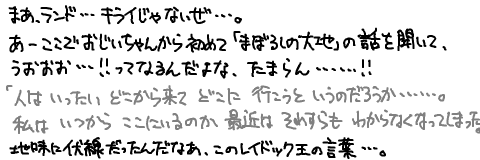 まあ、ランド…キライじゃないぜ…。
あーここでおじいちゃんから初めて「まぼろしの大地」の話を聞いて、
うおおお…!!ってなるんだよな、たまらん……!!
「人は いったい どこから来て どこに 行こうと いうのだろうか……。
私は いつから ここにいるのか 最近は それすらも わからなくなってしまった
地味に伏線だったんだなあ、このレイドック王の言葉…。